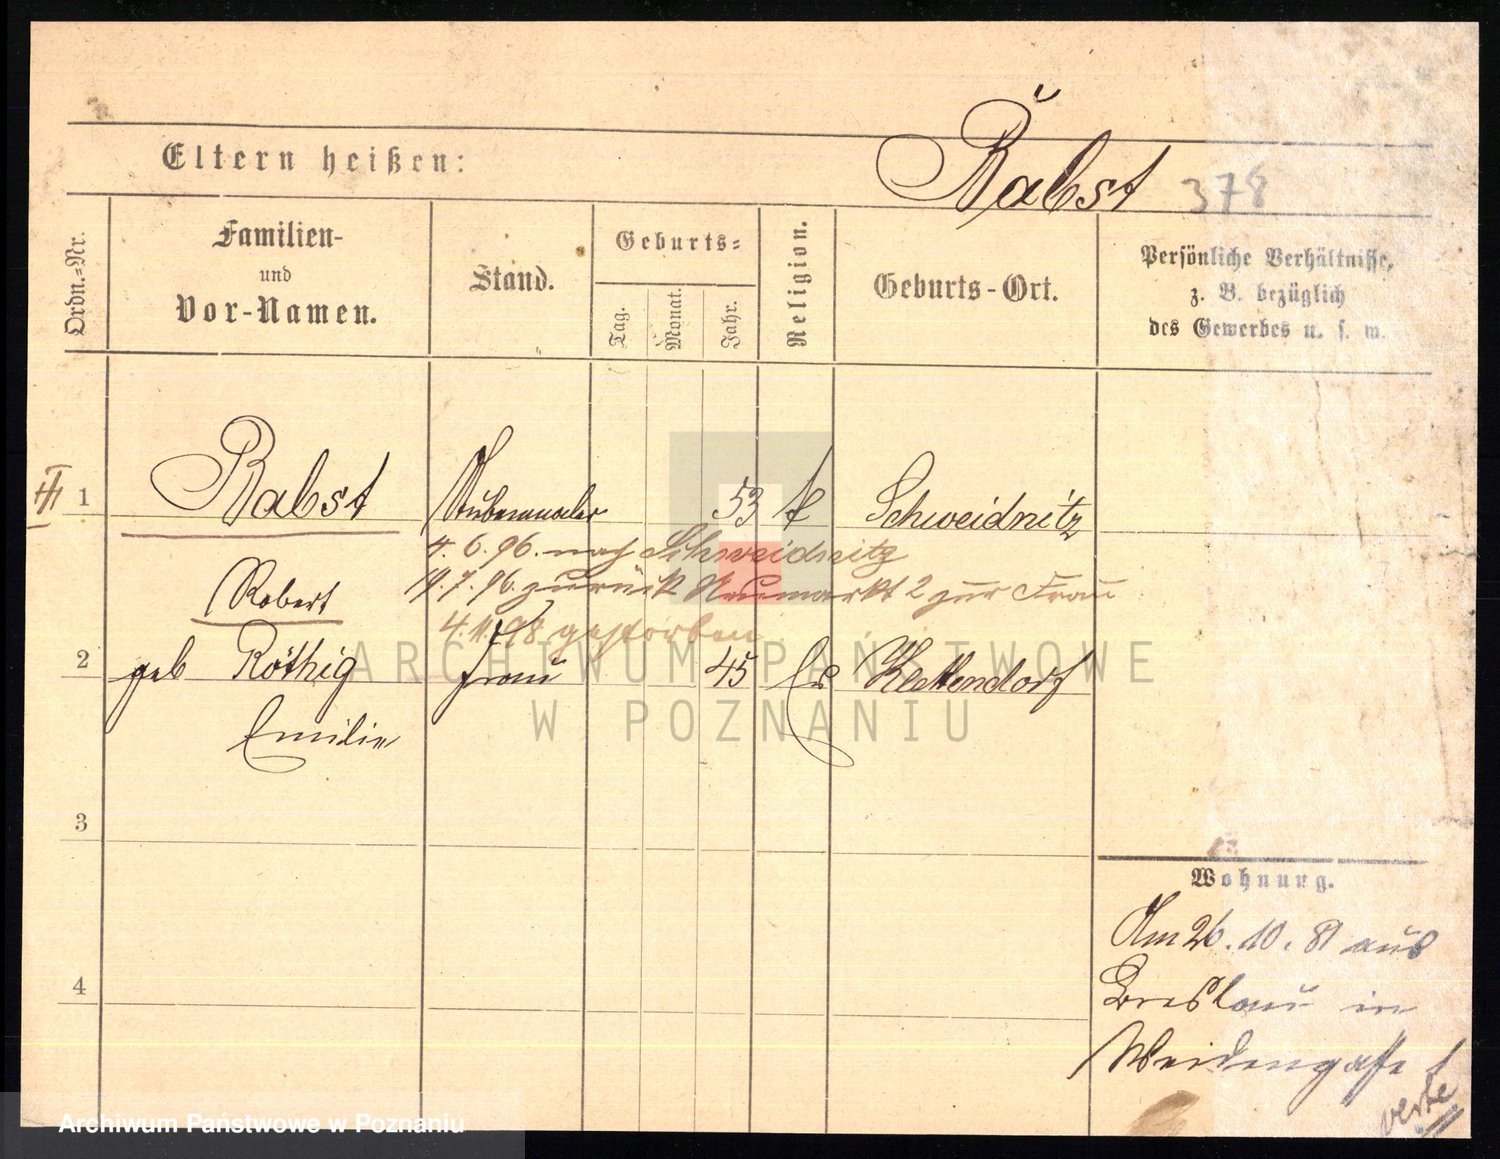 Räbst 378
Eltern heißen:
Ordn.-Nr.
Familien-
und
Vor-Namen.
Stand.
Geburts-
Tag.
Monat.
Jahr.
Religion.
Geburts-Ort.
Persönliche Verhältnisse,
z. B. bezüglich
des Gewerbes u. s. w.
III 1 Rabst Stubenmaler 53 k Schweidnitz
4. 6. 96. nach Schweidnitz
Robert
7. 96. zurück Neumarkt 2 zur Frau
4. 11. 98 gestorben
2 geb Röthig Frau 45 Ev Klettendorf
Emilie
3
4
Wohnung.
Am 26. 10. 81 aus
Breslau in
Weidengasse 1
verte
ARCHIWUM PAŃSTWOWE
W POZNANIU
Archiwum Państwowe w Poznaniu